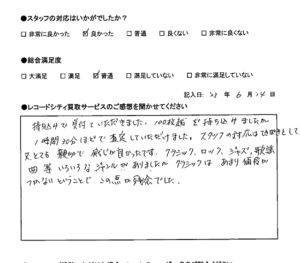 ●スタッフの対応はいかがでしたか？
□ 非常に良かった ☑ 良かった □ 普通 □ 良くない □ 非常に良くない
●総合満足度
□ 大満足 □ 満足 ☑ 普通 □ 満足していない □ 非常に満足していない
記入日: 23 年 6 月 24 日
●レコードシティ買取サービスのご感想を聞かせてください
持込みで受付ていただきました。100枚越を持ち込みましたが
1時間30分ほどで査定していただけました。スタッフの対応はてきぱきとして
又とても親切で感じが良かったです。クラシック、ロック、ジャズ、歌謡
曲等いろいろなジャンルがありましたがクラシックはあまり値段が
つかないということでこの点が残念でした。